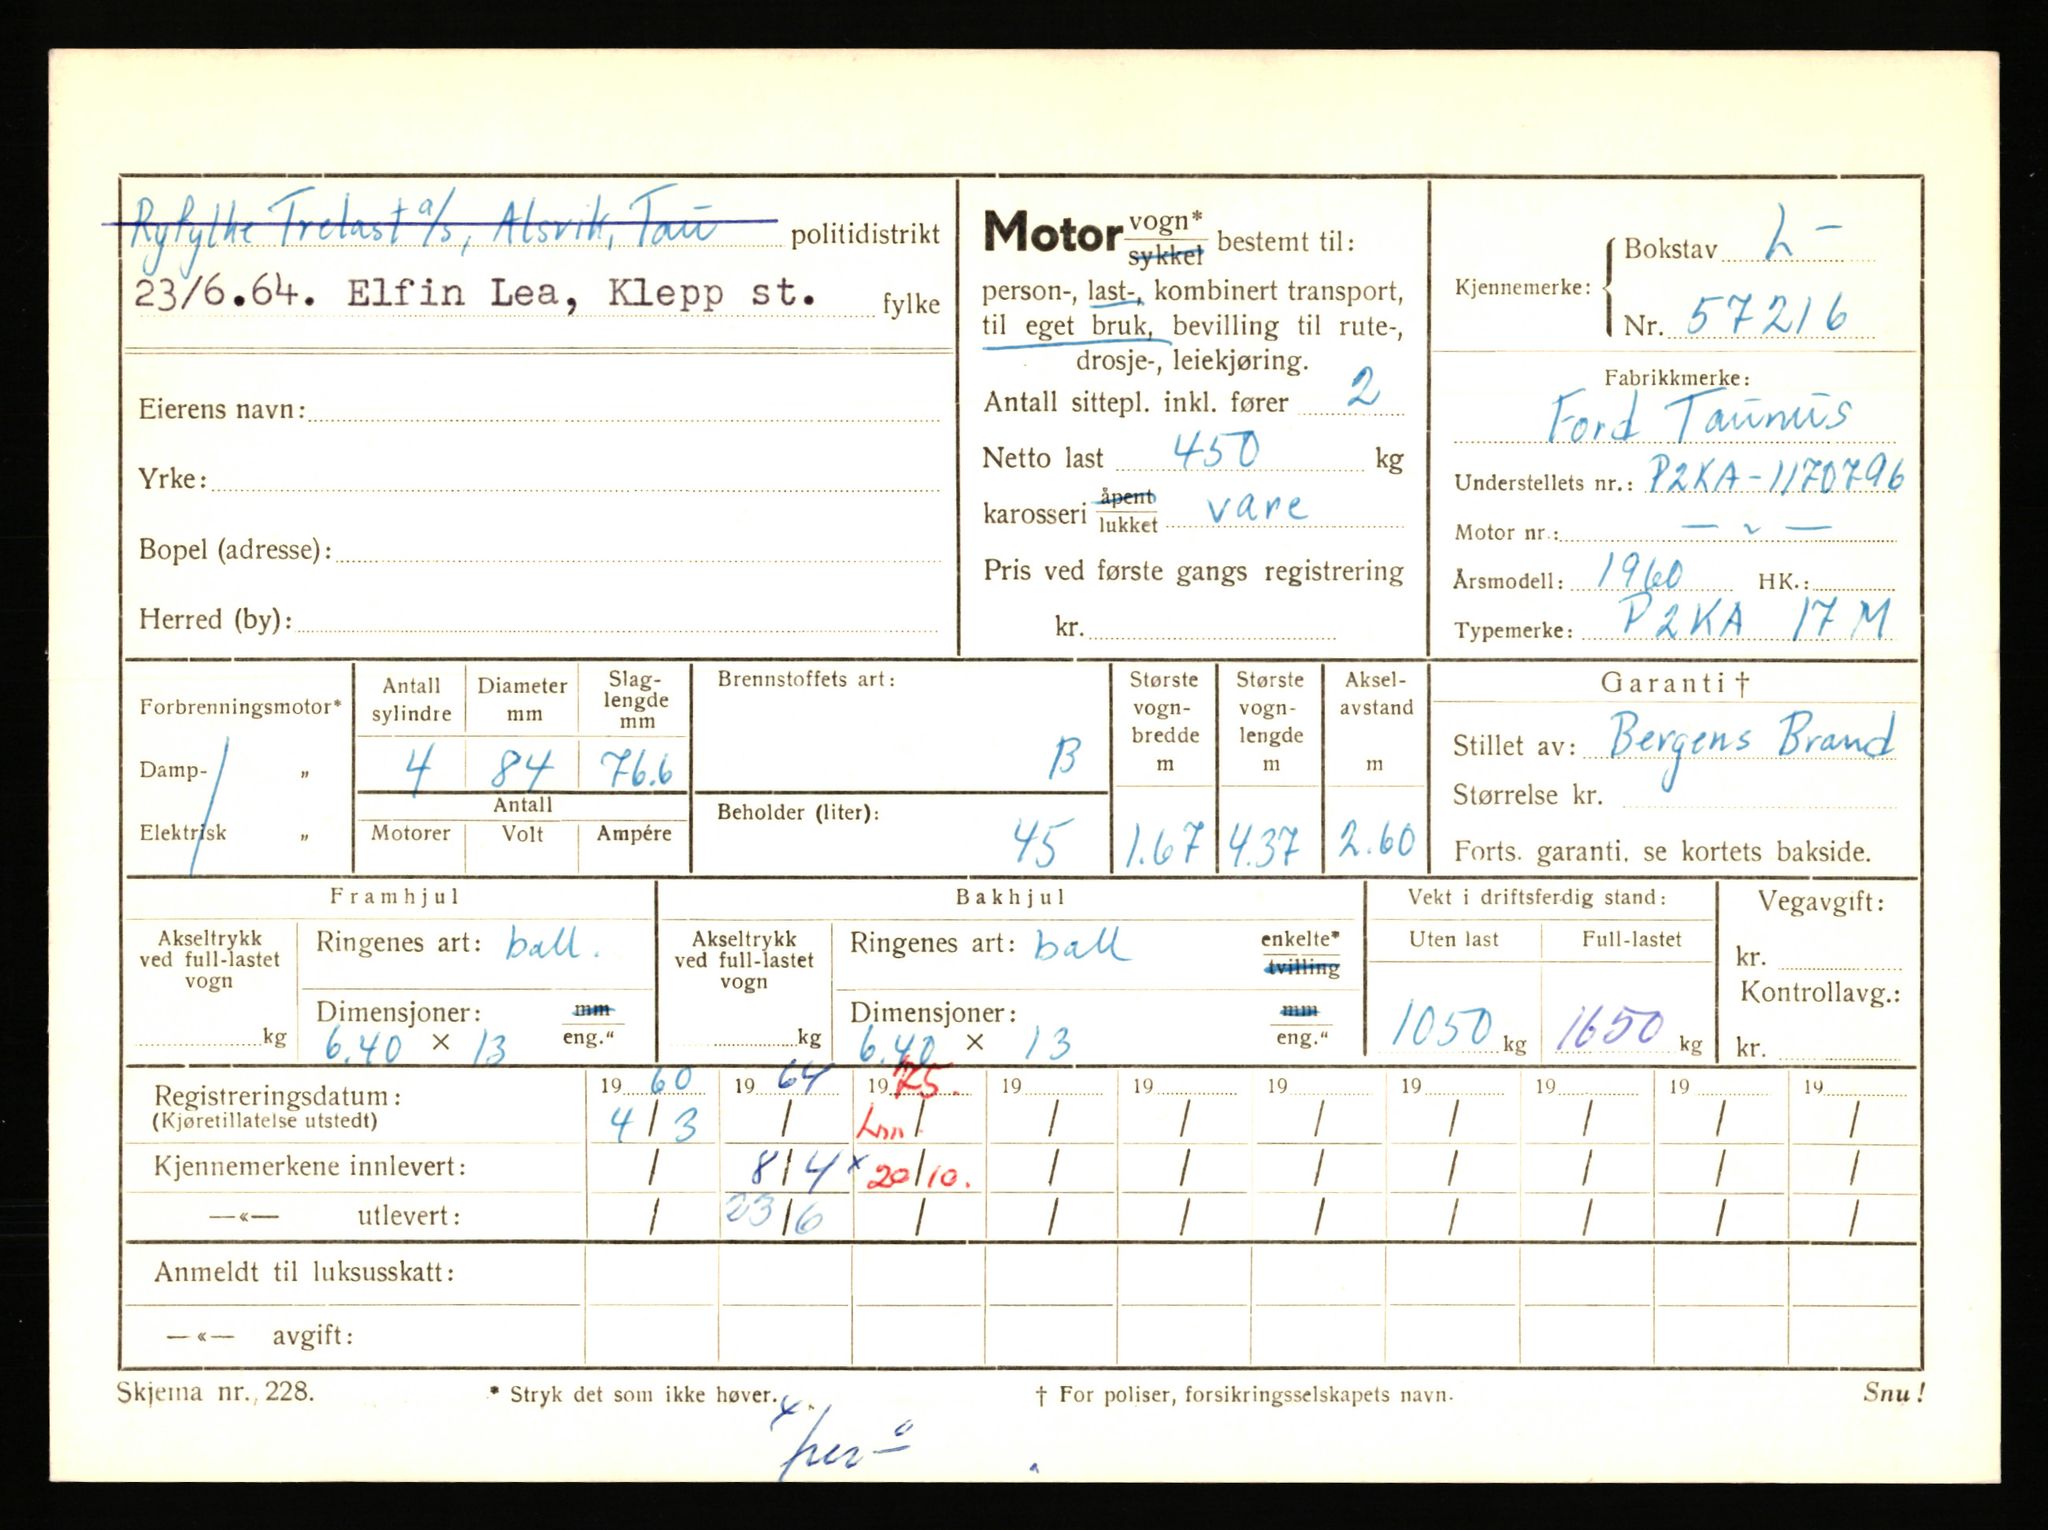 Ryfylke Trelast a/s, Alsvik, Tau politidistrikt
23/6.64. Elfin Lea, Klepp st. fylke
Eierens navn:
Yrke:
Bopel (adresse):
Herred (by):
Motor vogn* sykkel bestemt til:
person-, last-, kombinert transport,
til eget bruk, bevilling til rute-,
drosje-, leiekjøring.
Antall sittepl. inkl. fører 2
Netto last 450 kg
karosseri åpent lukket vare
Pris ved første gangs registrering
kr.
Kjennemerke: Bokstav L-
Nr. 57216
Fabrikkmerke:
Ford Taunus
Understellets nr.: P2KA-1170796
Motor nr.: — " —
Årsmodell: 1960 HK.:
Typemerke: P2KA 17 M
Forbrenningsmotor*
Damp- „
Elektrisk „
Antall sylindre Diameter mm Slag-lengde mm
4 84 76.6
Antall
Motorer Volt Ampére
Brennstoffets art:
B
Beholder (liter):
45
Største vogn-bredde m
1.67
Største vogn-lengde m
4.37
Aksel-avstand m
2.60
Garanti †
Stillet av: Bergens Brand
Størrelse kr.
Forts. garanti. se kortets bakside.
Framhjul
Akseltrykk ved full-lastet vogn
kg
Ringenes art: ball.
Dimensjoner: mm
6.40 × 13 eng."
Bakhjul
Akseltrykk ved full-lastet vogn
kg
Ringenes art: ball enkelte* tvilling
Dimensjoner: mm
6.40 × 13 eng."
Vekt i driftsferdig stand:
Uten last Full-lastet
1050 kg 1650 kg
Vegavgift:
kr.
Kontrollavg.:
kr.
Registreringsdatum: 19 60 19 64 19 75. 19 19 19 19 19 19 19
(Kjøretillatelse utstedt) 4/3 / / / / / / / / /
Kjennemerkene innlevert: / 8/4 x 20/10. / / / / / / /
—«— utlevert: / 23/6 / / / / / / / /
Anmeldt til luksusskatt:
—«— avgift:
Skjema nr. 228. * Stryk det som ikke høver. † For poliser, forsikringsselskapets navn. Snu!
x